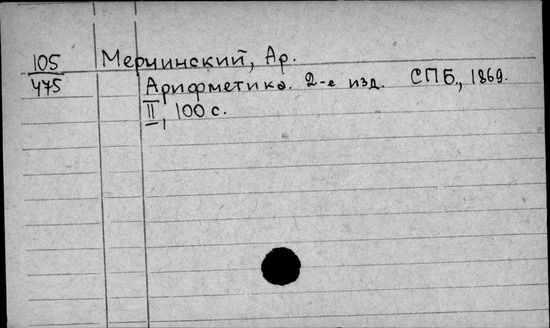 105 Мерчинский, Ар.
475 Арифметика. 2-е изд. СПБ., 1869.
II, 100 с.